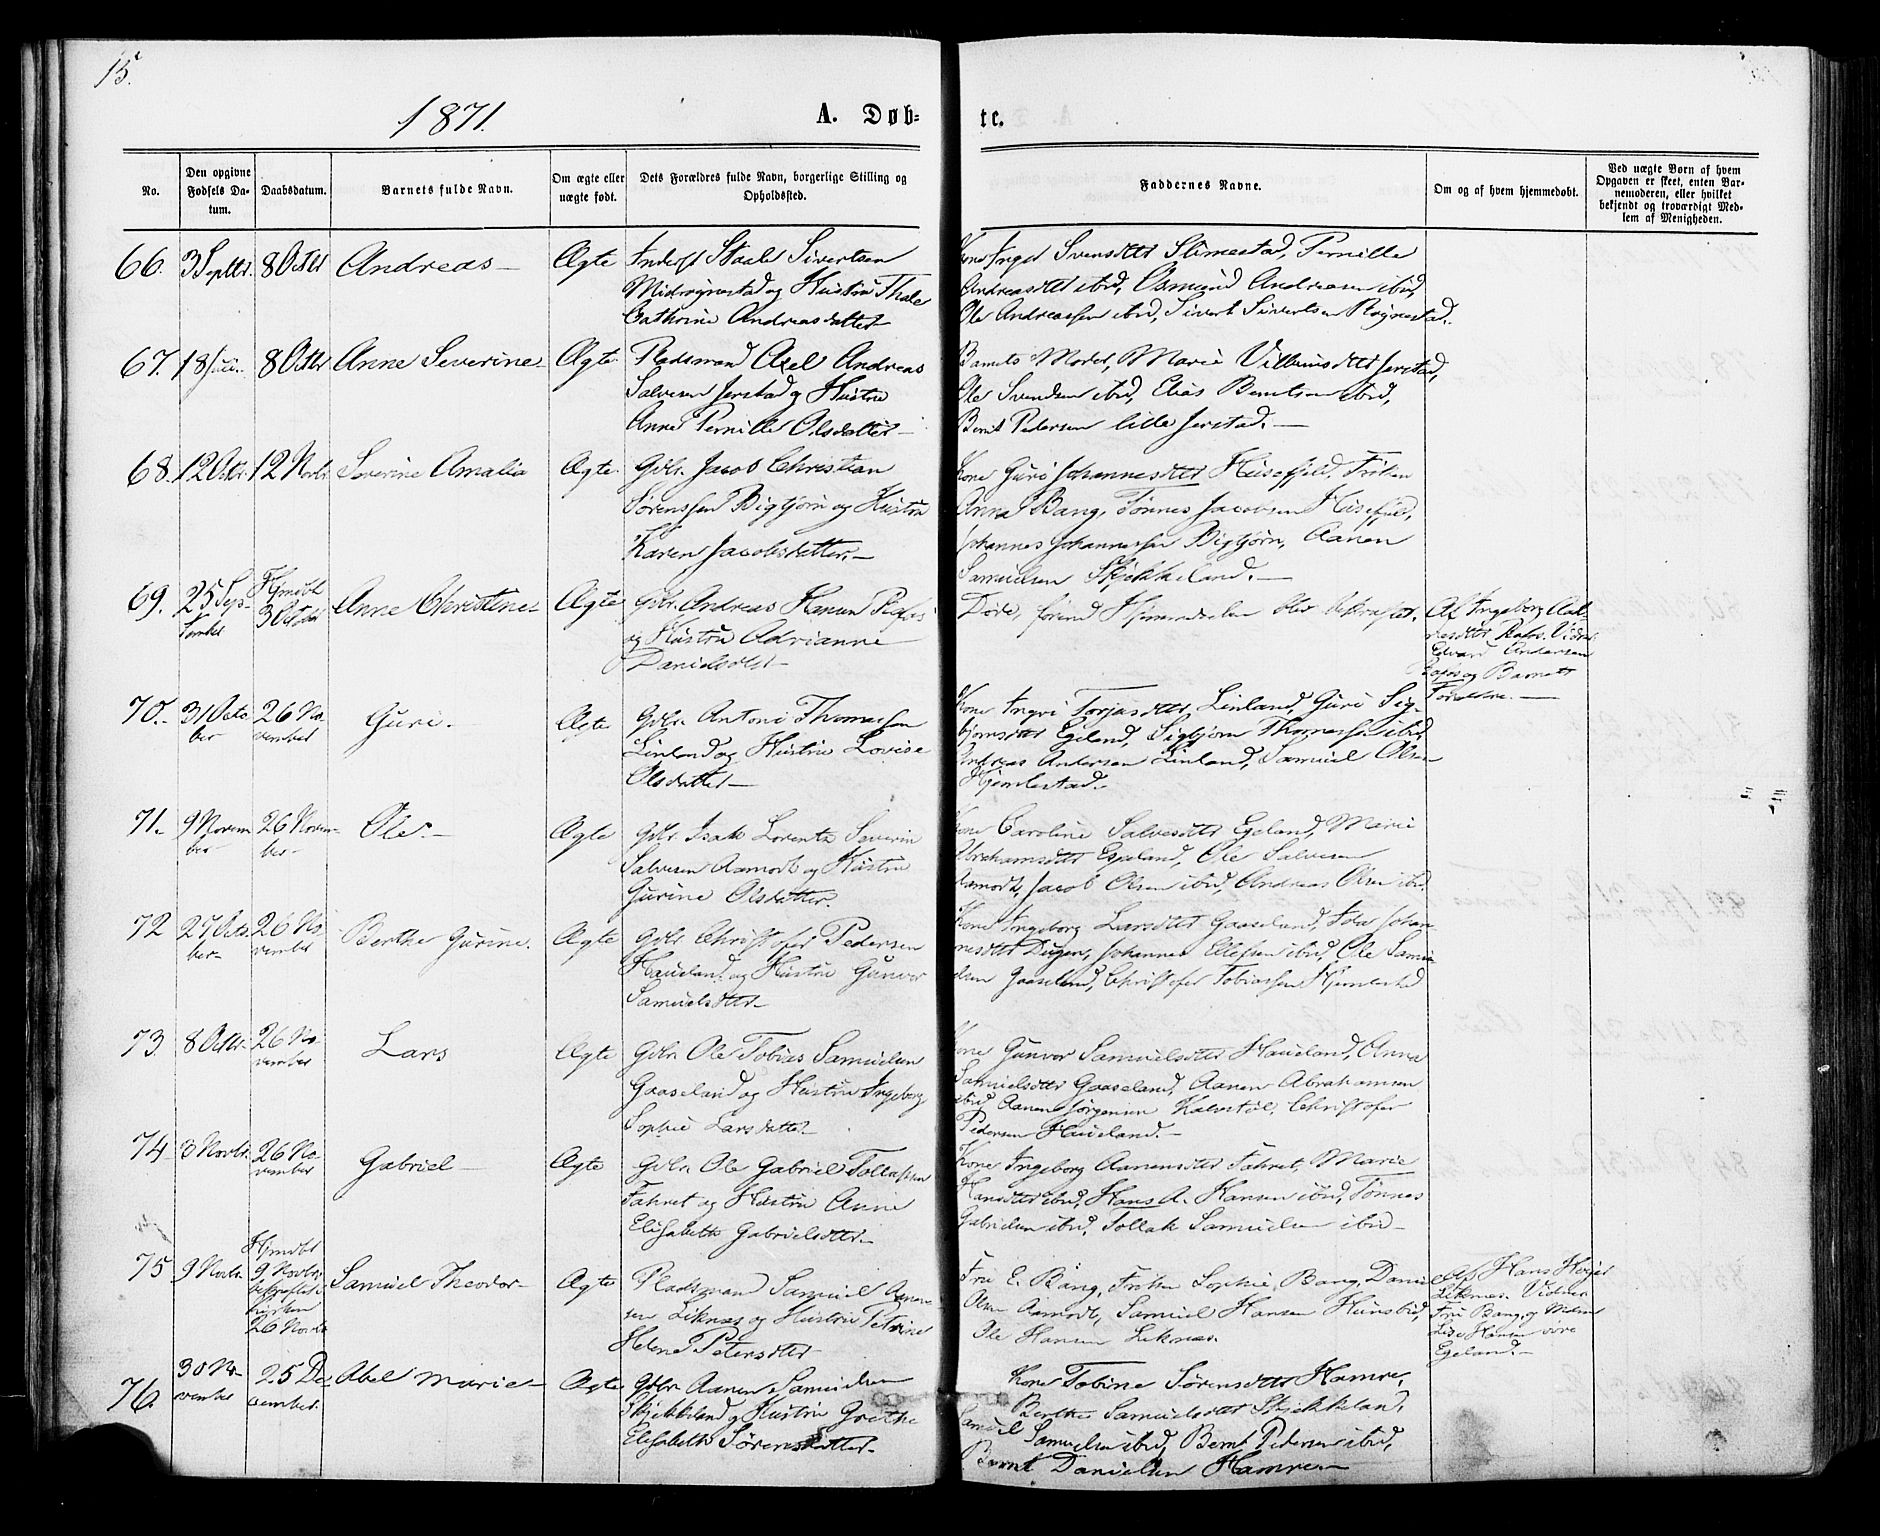 15.
1871.
A. Døb-
te.
No.
Den opgivne
Fødsels Da-
tum.
Daabsdatum.
Barnets fulde Navn.
Om ægte eller
uægte født.
Dets Forældres fulde Navn, borgerlige Stilling og
Opholdssted.
Faddernes Navne.
Om og af hvem hjemmedøbt.
Ved uægte Børn af hvem
Opgaven er skeet, enten Bar-
nemoderen, eller hvilket
bekjendt og troværdigt Med-
lem af Menigheden.
66.
3 Septbr.
8 Octbr
Andreas
Ægte
Inderst Staale Sivertsen
og Hustru Thale
Cathrine Andreasdatter
Kone Inger Svensdttr Slimestad, Pernille
Andreasdttr ibid, Osmund Andreasen ibid,
Ole Andreassen ibid, Sivert Sivertsen Røynestad.
67.
18
8 Octbr
Anne Severine
Ægte
Pladsmand Axel Andreas
Salvesen Jerstad og Hustru
Anne Pernille Olsdatter
Barnets Moder, Marie Jerstad,
Ole Svendsen ibid, Elias Berntsen ibid,
Bernt Pedersen lille Jerstad.
68.
12 Octbr
12 Novbr
Severine Amalia
Ægte
Gdbr. Jacob Christian
Sørenssen Bigtjørn og Hustru
Karen Jacobsdatter.
Kone Guri Johannesdttr Heisefjeld, Frøken
Anna Bang, Tønnes Jacobsen
Johannes Johannessen Bigtjørn, Aanen
Samuelsen Skjekkeland.
69.
25 Sep-
tember
Hjmdbt
3 October
Anne Christine
Ægte
Gdbr. Andreas Hansen
og Hustru Adrianne
Danielsdttr
Døde, førend Hjemmedaaben blev bekræftet.
Af Ingeborg
Edvard Andersen
og Barnets
Forældre.
70.
31 Octo-
ber
26 No-
vember
Guri.
Ægte
Gdbr. Antoni Thomassen
Linland og Hustru Lovise
Olsdatter
Kone Ingri Torjusdttr Linland, Guri Sig-
bjørnsdttr Egeland, Sigbjørn Thomassen ibid,
Andreas Andersen Linland, Samuel Olsen
Hjemlestad.
71.
9 Novem
ber
26 Novem-
ber
Ole.
Ægte
Gdbr. Isak Lorentz Severin
Salvesen Aamodt og Hustru
Gurine Olsdatter.
Kone Caroline Salvesdttr Egeland, Marie
Abrahamsdttr Egeland, Ole Salvesen
Aamodt, Jacob Olsen ibid, Andreas Olsen ibid
72
27 Octo-
ber
26 No-
vember
Berthe Gurine.
Ægte
Gdbr Christofer Pedersen
Haueland og Hustru Gunvor
Samuelsdttr
Kone Ingeborg Larsdttr Gaaseland, Johan-
nesdttr Dugen, Johannes Ellefsen ibid, Ole Samu-
elsen Gaaseland, Christofer Tobiassen Hjemlestad
73.
8 Octbr.
26 No-
vember
Lars
Ægte
Gdbr Ole Tobias Samuelsen
Gaaseland og Hustru Ingeborg
Sophie Larsdatter
Kone Gunvor Samuelsdttr Haueland, Anna
Samuelsdttr Gaaseland, Aanen Abrahamsen
ibid Aanen Jørgensen Christofer
Pedersen Haueland.
74
3 Novbr.
26 No-
vember
Gabriel
Ægte
Gdbr. Ole Gabriel Tollaksen
Fahret og Hustru Anne
Elisabeth Gabrielsdttr.
Kone Ingeborg Aanensdttr Fahret, Marie
Hansdttr ibid, Hans A. Hansen ibid, Tønnes
Gabrielsen ibid, Tollak Samuelsen ibid
75
9 Novbr.
Hjmdbt
9 Novbr.
bekræftet i
Kirken
26 Novbr
Samuel Theodor
Ægte
Pladsmand Samuel
Liknæs og Hustru Petrine
Helene Petersdttr
Fru E. Bang, Frøken Sophie Bang, Daniel
Olsen Aamodt, Samuel Hansen Hunsbid,
Ole Hansen Liknæs.
Af Hans
Liknæs. Vidner
Fru Bang og
Hansen øvre
Egeland.
76.
30 No-
vember
25 De-
cember.
Abel Marie
Ægte
Gdbr. Aanen Samuelsen
Skjekkeland og Hustru Grethe
Elisabeth Sørensdatter
Kone Tobine Sørensdttr Hamre,
Berthe Samuelsdttr Skjekkeland,
Samuel Samuelsen ibid, Bernt Pedersen ibid,
Bernt Danielsen Hamre